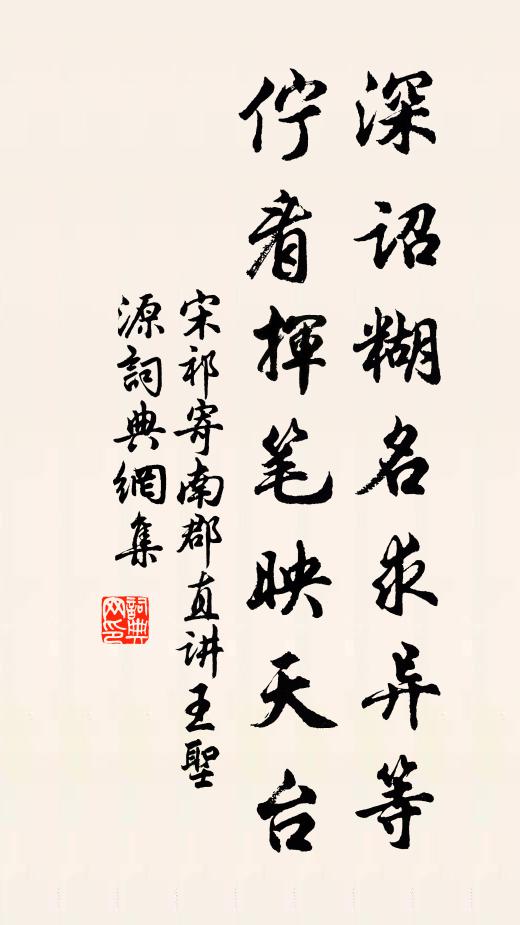 深诏糊名求异等
伫看揮笔映天台
宋祁寄南郡直讲王聖
源詞典網集
詞典网印